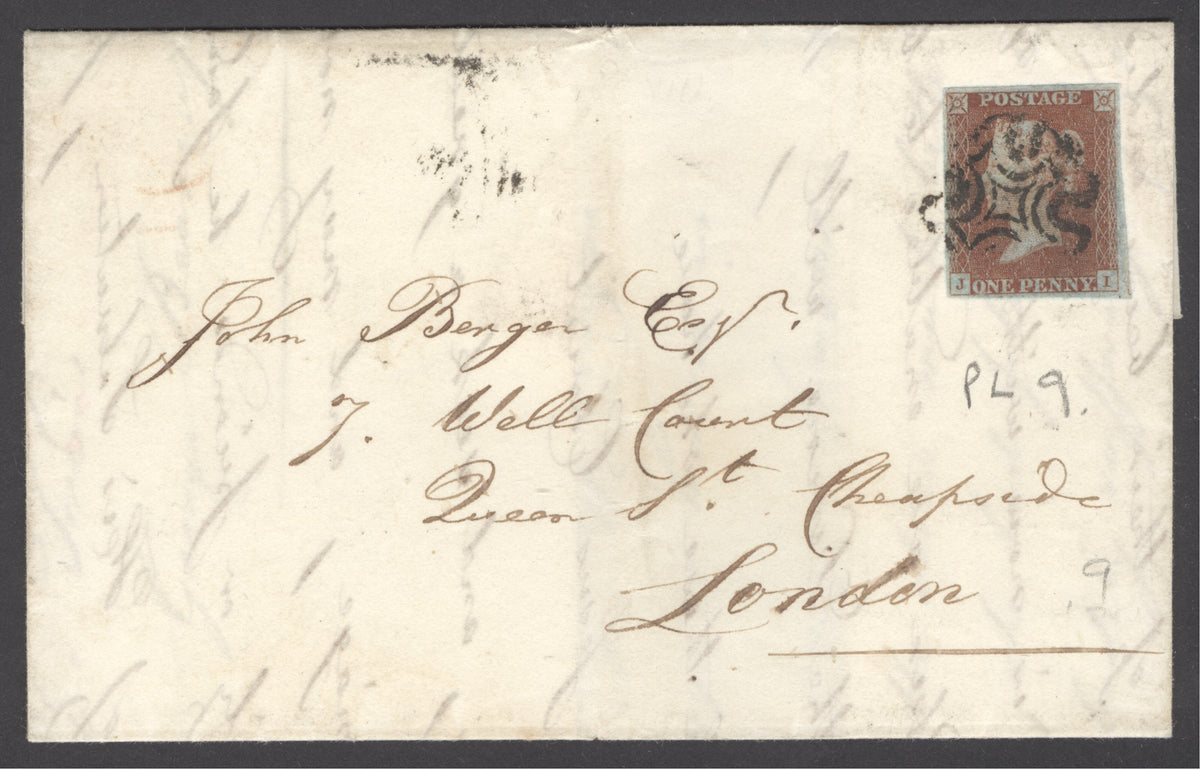 POSTAGE
J ONE PENNY. I
John Berger Esqr.
7. Well Court
Queen St. Cheapside
London
PL 9.
9